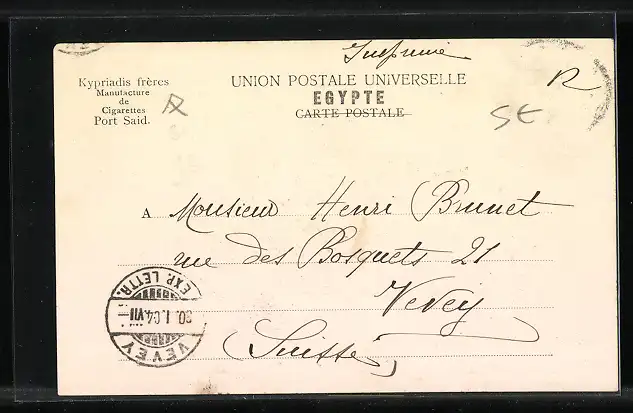 Imprimé
Kypriadis frères
Manufacture
de
Cigarettes
Port Said.
UNION POSTALE UNIVERSELLE
EGYPTE
CARTE POSTALE
R
St
A Monsieur Henri Brunet
rue des Bosquets 21
Vevey
(Suisse)
EXP. LETTR.
30. I. 04. VII
VEVEY